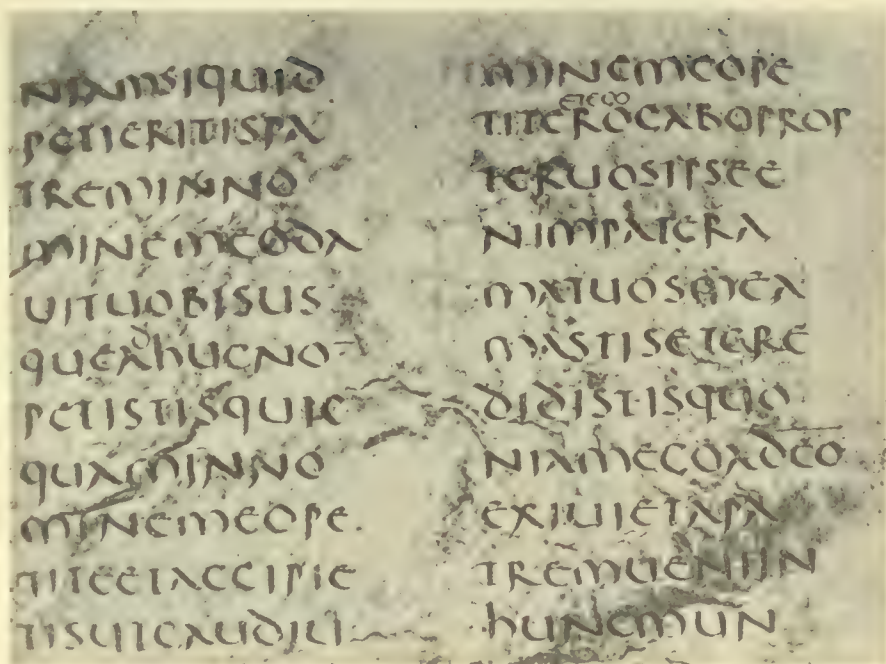 NIAMSIQUID
PETIERITISPA
TREMINNO
MINEMEODA
UITUOBISUS
D
QUEAHUCNO
PETISTISQUIC
QUAMINNO
MINEMEOPE
TITEETACCIPIE
TISUTGAUDIU
MINEMEOPE
ETEGO
TITEROGABOPROP
TERUOSIPSEE
NIMPATERA
MATUOSMEA
MASTISETCRE
DIDISTISQUO
NIAMEGOADEO
EXIUIETAPA
TREMUENIIN
HUNCMUN